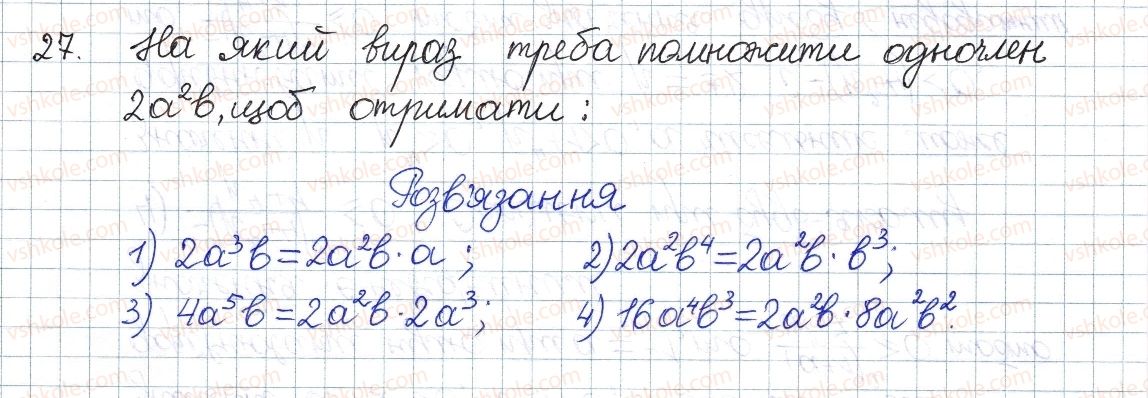 27. На який вираз треба помножити одночлен
2a²b, щоб отримати:
Розв'язання
1) 2a³b=2a²b·a; 2) 2a²b⁴=2a²b·b³;
3) 4a⁵b=2a²b·2a³; 4) 16a⁴b³=2a²b·8a²b².